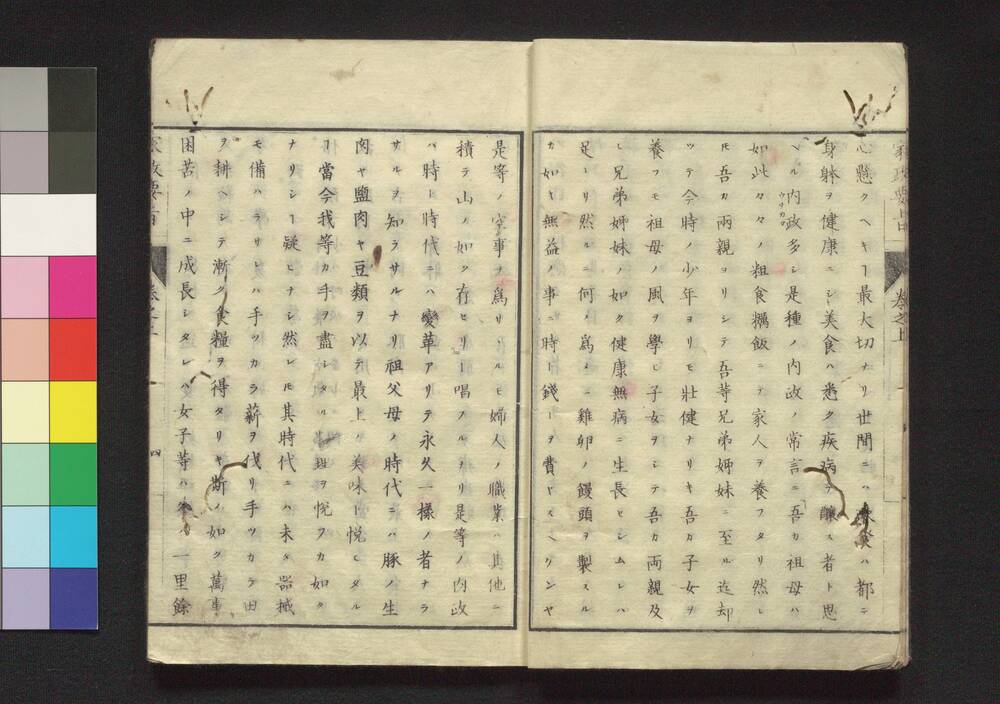 心懸クヘキヿ最大切ナリ世間ニハ ハ都ニ
身躰ヲ健康ニシ美食ハ悉ク疾病ヲ醸ス者ト思
ヘル内政多シ是種ノ内政ノ常言ニ吾カ祖母ハ
如此々々ノ粗食糲飯ニテ家人ヲ養フタリ然レ
𪜈吾カ兩親ヨリシテ吾等兄弟姉妹ニ至ル迄却
ツテ今時ノ少年ヨリモ壯健ナリキ吾カ子女ヲ
養フモ祖母ノ風ヲ學ヒ子女ヲシテ吾カ両親及
ヒ兄弟姉妹ノ如ク健康無病ニ生長セシムレハ
足レリ然ルニ何ノ爲メニ雞卵ノ饅頭ヲ製スル
カ如キ無益ノ事ニ時ト錢トヲ費ヤスヘケンヤ
家政要旨 卷之上
是等ノ 事ヲ爲サヽルモ婦人ノ職業ハ其他ニ
積テ山ノ如ク存セリト唱フルナリ是等ノ内政
ハ時ト時代ニハ變革アリテ永久一樣ノ者ナラ
サルヲ知ラサルナリ祖父母ノ時代ニハ豚ノ生
肉ヤ鹽肉ヤ豆類ヲ以テ最上ノ美味ト悦ヒタル
ヿ當今我等カ手ヲ盡シタル 理ヲ悦フカ如ク
ナリシヿ疑ヒナシ然レ𪜈其時代ニハ未タ器械
モ備ハラサレハ手ツカラ薪ヲ伐リ手ツカラ田
ヲ耕ヘシテ漸ク食糧ヲ得タリキ斯ノ如ク萬事
困苦ノ中ニ成長シタレハ女子等ハ 一里餘
家政要旨 卷之上 四